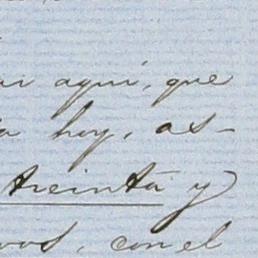 aquí, que
hoy, as-
treinta y
con el